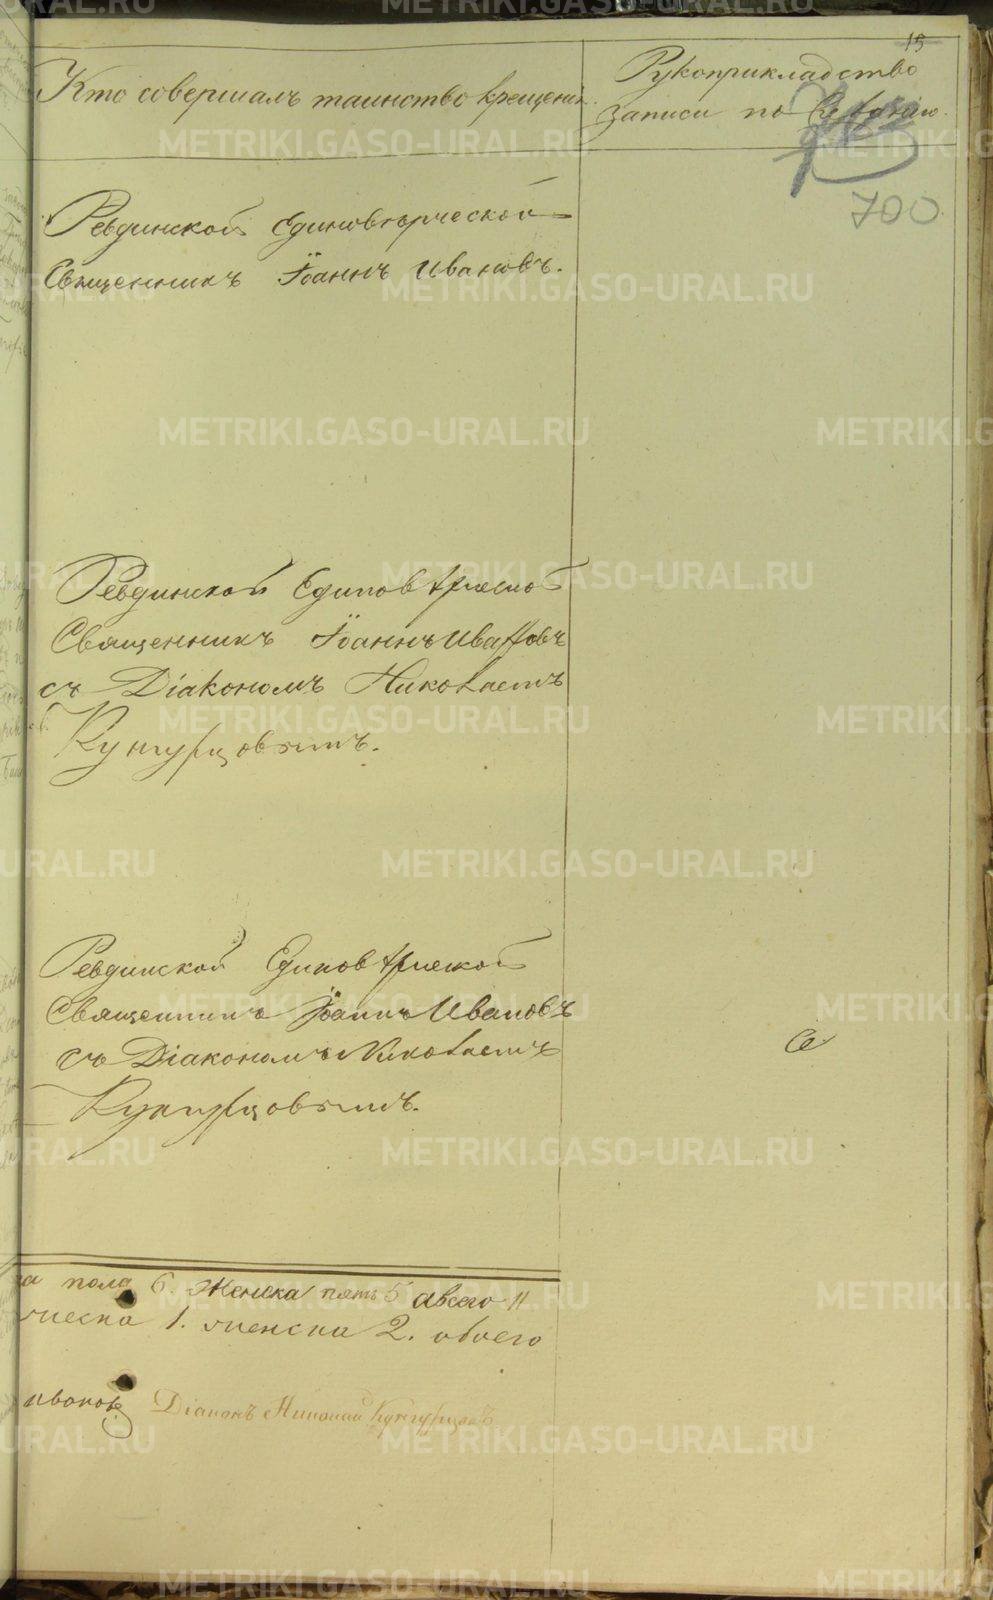 15
Кто совершалъ таинство крещенія.
Рукоприкладство
записи по желанію.
700
Ревдинской Единовѣрческой
Священникъ Іоаннъ Ивановъ.
Ревдинской Единовѣрческой
Священникъ Іоаннъ Ивановъ
съ Діакономъ Николаемъ
Кунгурцовымъ.
Ревдинской Единовѣрческой
Священникъ Іоаннъ Ивановъ
съ Діакономъ Николаемъ
Кунгурцовымъ.
а пола 6. Женска пять 5 а всего 11
1. женска 2. обоего
Діаконъ Николай Кунгурцовъ
METRIKI.GASO-URAL.RU